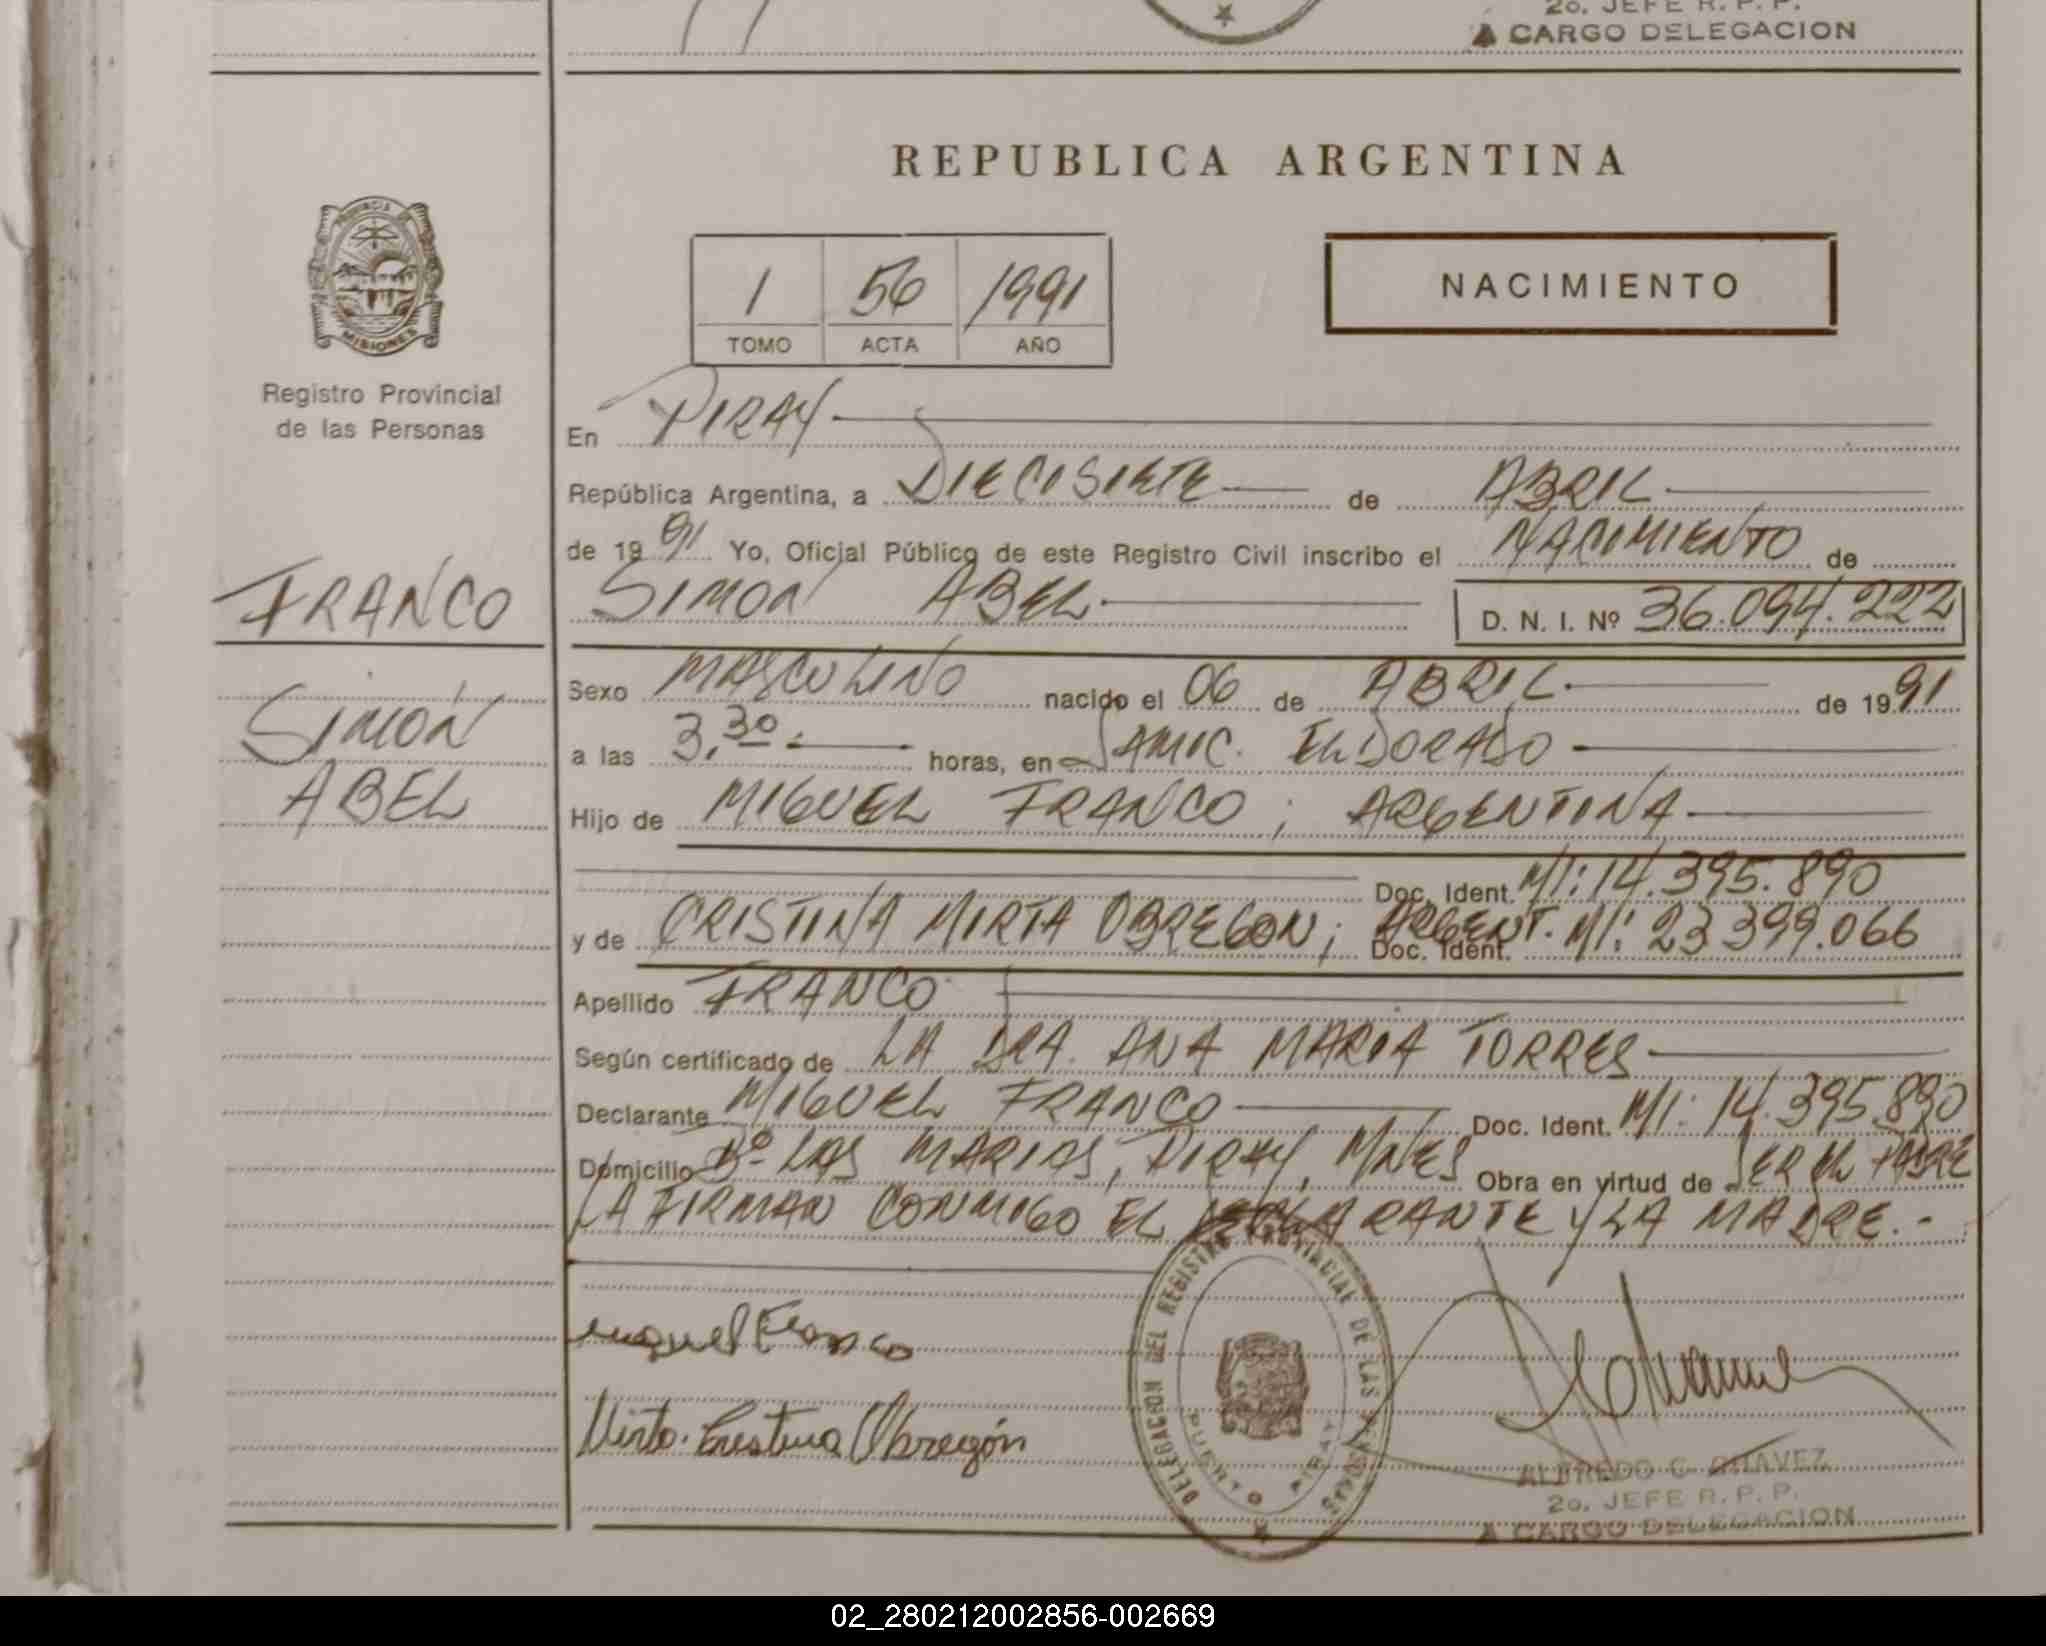 2o. JEFE R. P. P.
A CARGO DELEGACION
REPUBLICA ARGENTINA
PROVINCIA DE
MISIONES
1 56 1991
TOMO ACTA AÑO
NACIMIENTO
Registro Provincial
de las Personas
FRANCO
SIMON
ABEL
En PIRAY
República Argentina, a DIECISIETE de ABRIL
de 1991 Yo, Oficial Público de este Registro Civil inscribo el NACIMIENTO de
SIMON ABEL D. N. I. Nº 36.094.222
Sexo MASCULINO nacido el 06 de ABRIL de 1991
a las 3,30 horas, en SAMIC. ELDORADO
Hijo de MIGUEL FRANCO; ARGENTINA
Doc. Ident. MI: 14.395.890
y de CRISTINA MIRTA OBREGON; ARGENT. Doc. Ident. MI: 23 399.066
Apellido FRANCO
Según certificado de LA DRA. ANA MARIA TORRES
Declarante MIGUEL FRANCO Doc. Ident. MI: 14.395.890
Domicilio Bº LAS MARIAS, PIRAY, MNES Obra en virtud de SER EL PADRE
LA FIRMAN CONMIGO EL DECLARANTE Y LA MADRE.-
miguel Franco
Mirta Cristina Obregón
DELEGACION DEL REGISTRO PROVINCIAL DE LAS PERSONAS
PUERTO PIRAY
ALFREDO C. CHAVEZ
2o. JEFE R. P. P.
A CARGO DELEGACION
02_280212002856-002669